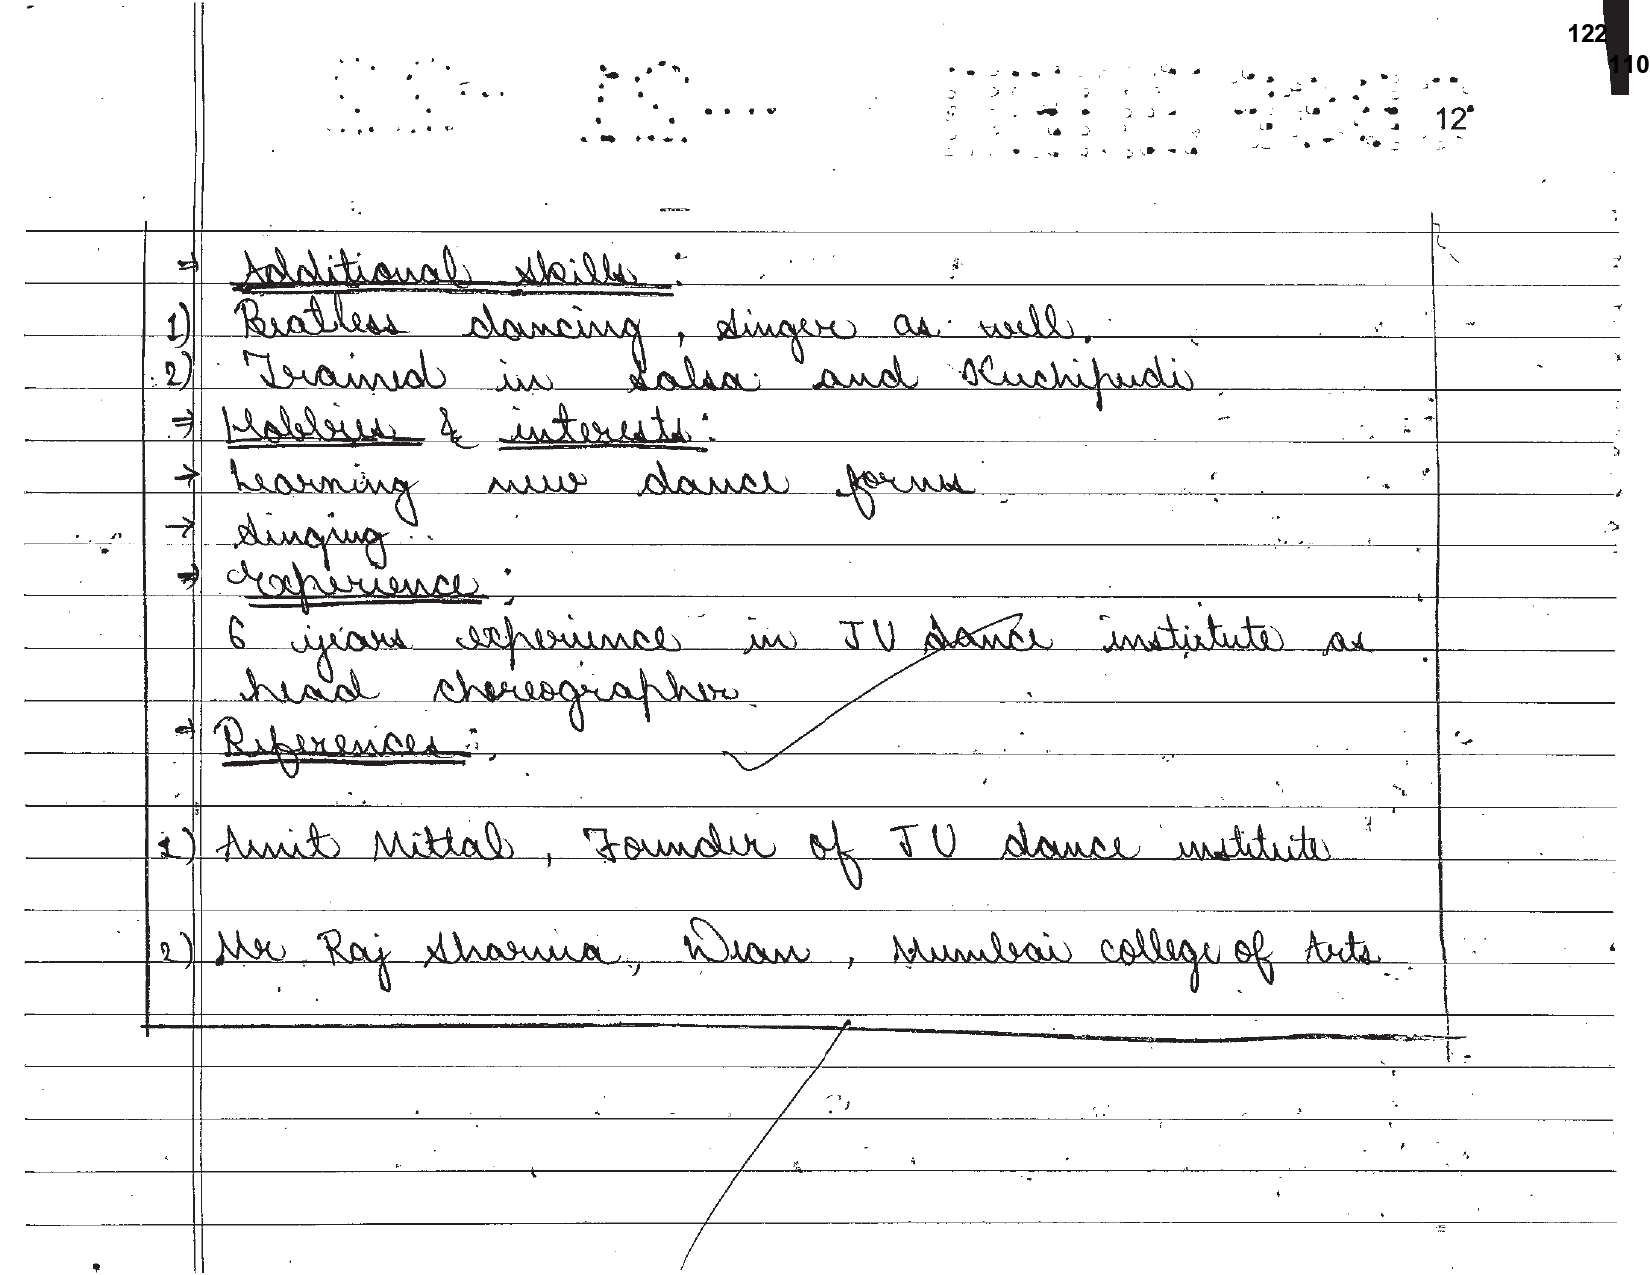 122
110
12
⇒ Additional skills :
1) Beatless dancing, singer as well.
2) Trained in salsa and Kuchipudi
⇒ Hobbies & interests :
→ Learning new dance forms
→ singing
⇒ Experience :
6 years experience in JV dance institute as
head choreographer
⇒ References :
1) Amit Mittal, Founder of JV dance institute
2) Mr Raj Sharma, Dean, Mumbai college of Arts